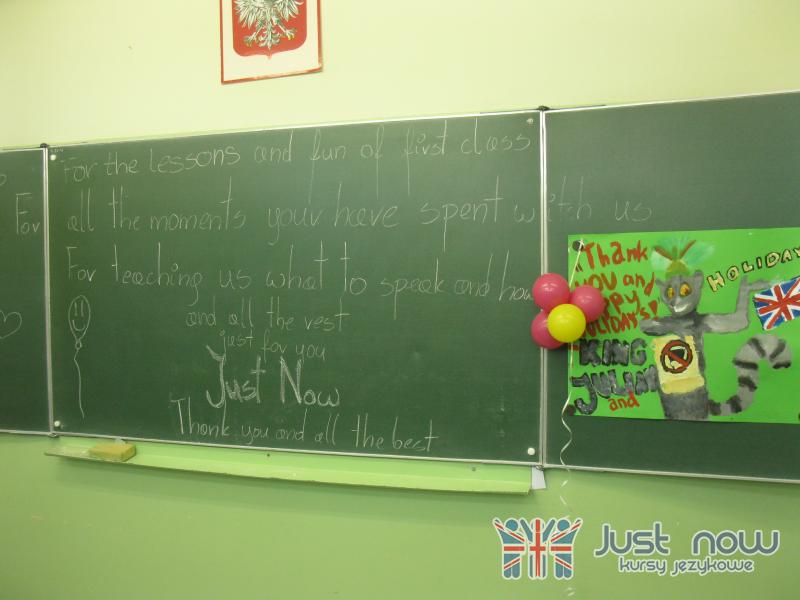 For the lessons and fun of first class
For all the moments your have spent witch us
For teaching us what to speak and how
and all the rest
just for you
Just Now
Thank you and all the best
"Thank
YOU and
HAPPY
HOLIDAYS!"
-KING
JULIAN
and
HOLIDAY
Just now
kursy językowe